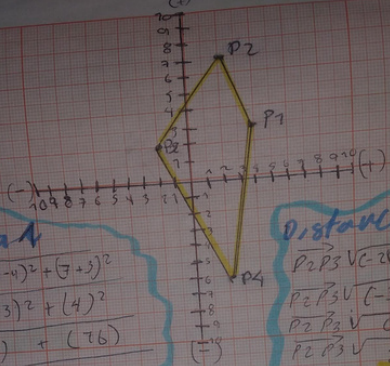 (+)
10
9
8
7
6
5
4
3
2
1
P2
P1
P3
P4
(-) 10 9 8 7 6 5 4 3 2 1
1 2 3 4 5 6 7 8 9 10 (+)
1
2
3
4
5
6
7
8
9
10
(-)
-4)² + (7+3)²
3)² + (4)²
) + (16)
Distanc
P2P3 √(-2
P2P3 √(-
P2 P3 √(-
P2 P3 √